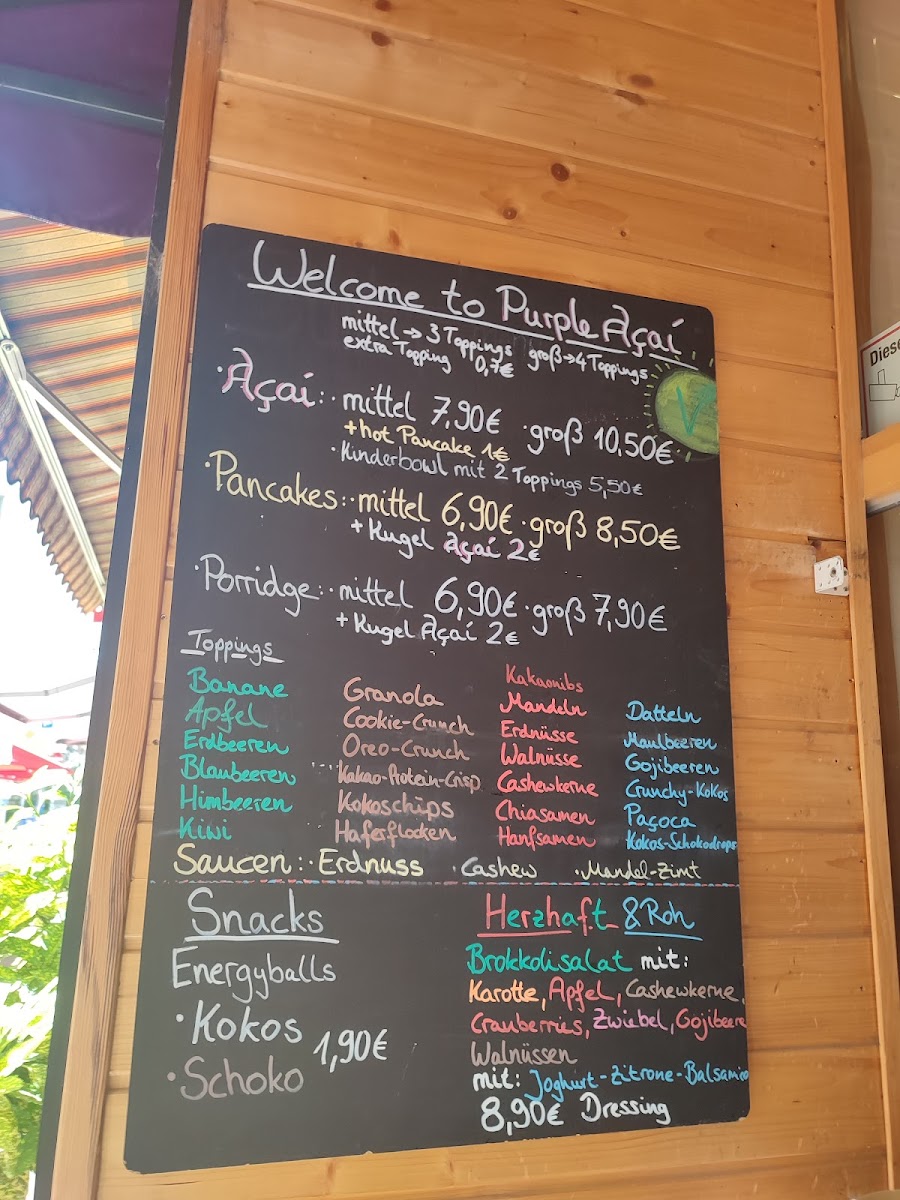 Welcome to Purple Açaí
mittel → 3 Toppings groß → 4 Toppings
extra Topping 0,7€
V
· Açaí: · mittel 7,90€ · groß 10,50€
+ hot Pancake 1€
· Kinderbowl mit 2 Toppings 5,50€
· Pancakes: · mittel 6,90€ · groß 8,50€
+ Kugel Açaí 2€
· Porridge: · mittel 6,90€ · groß 7,90€
+ Kugel Açaí 2€
Toppings
Banane
Apfel
Erdbeeren
Blaubeeren
Himbeeren
Kiwi
Granola
Cookie-Crunch
Oreo-Crunch
Kakao-Protein-Crisp
Kokoschips
Haferflocken
Kakaonibs
Mandeln
Erdnüsse
Walnüsse
Cashewkerne
Chiasamen
Hanfsamen
Datteln
Maulbeeren
Gojibeeren
Crunchy-Kokos
Paçoca
Kokos-Schokodrops
Saucen: · Erdnuss · Cashew · Mandel-Zimt
Snacks
Energyballs
· Kokos
1,90€
· Schoko
Herzhaft & Roh
Brokkolisalat mit:
Karotte, Apfel, Cashewkerne,
Cranberries, Zwiebel, Gojibeere
Walnüssen
mit: Joghurt-Zitrone-Balsamico
8,90€ Dressing
Diese